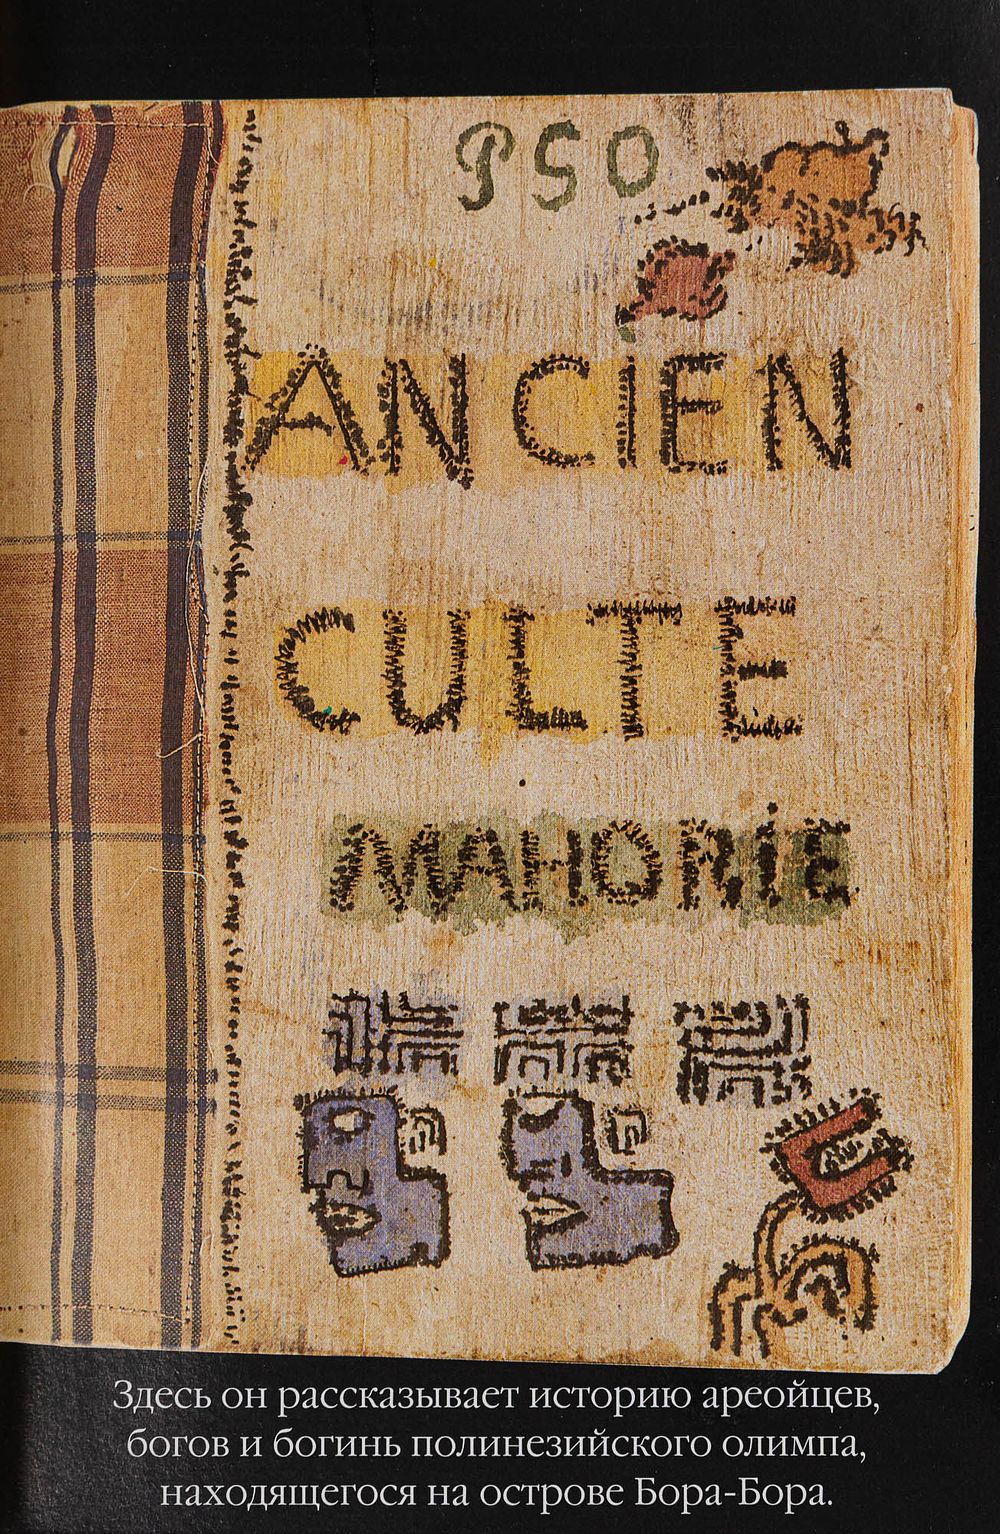 PSO
ANCIEN
CULTE
MAHORiE
Здесь он рассказывает историю ареойцев,
богов и богинь полинезийского олимпа,
находящегося на острове Бора-Бора.